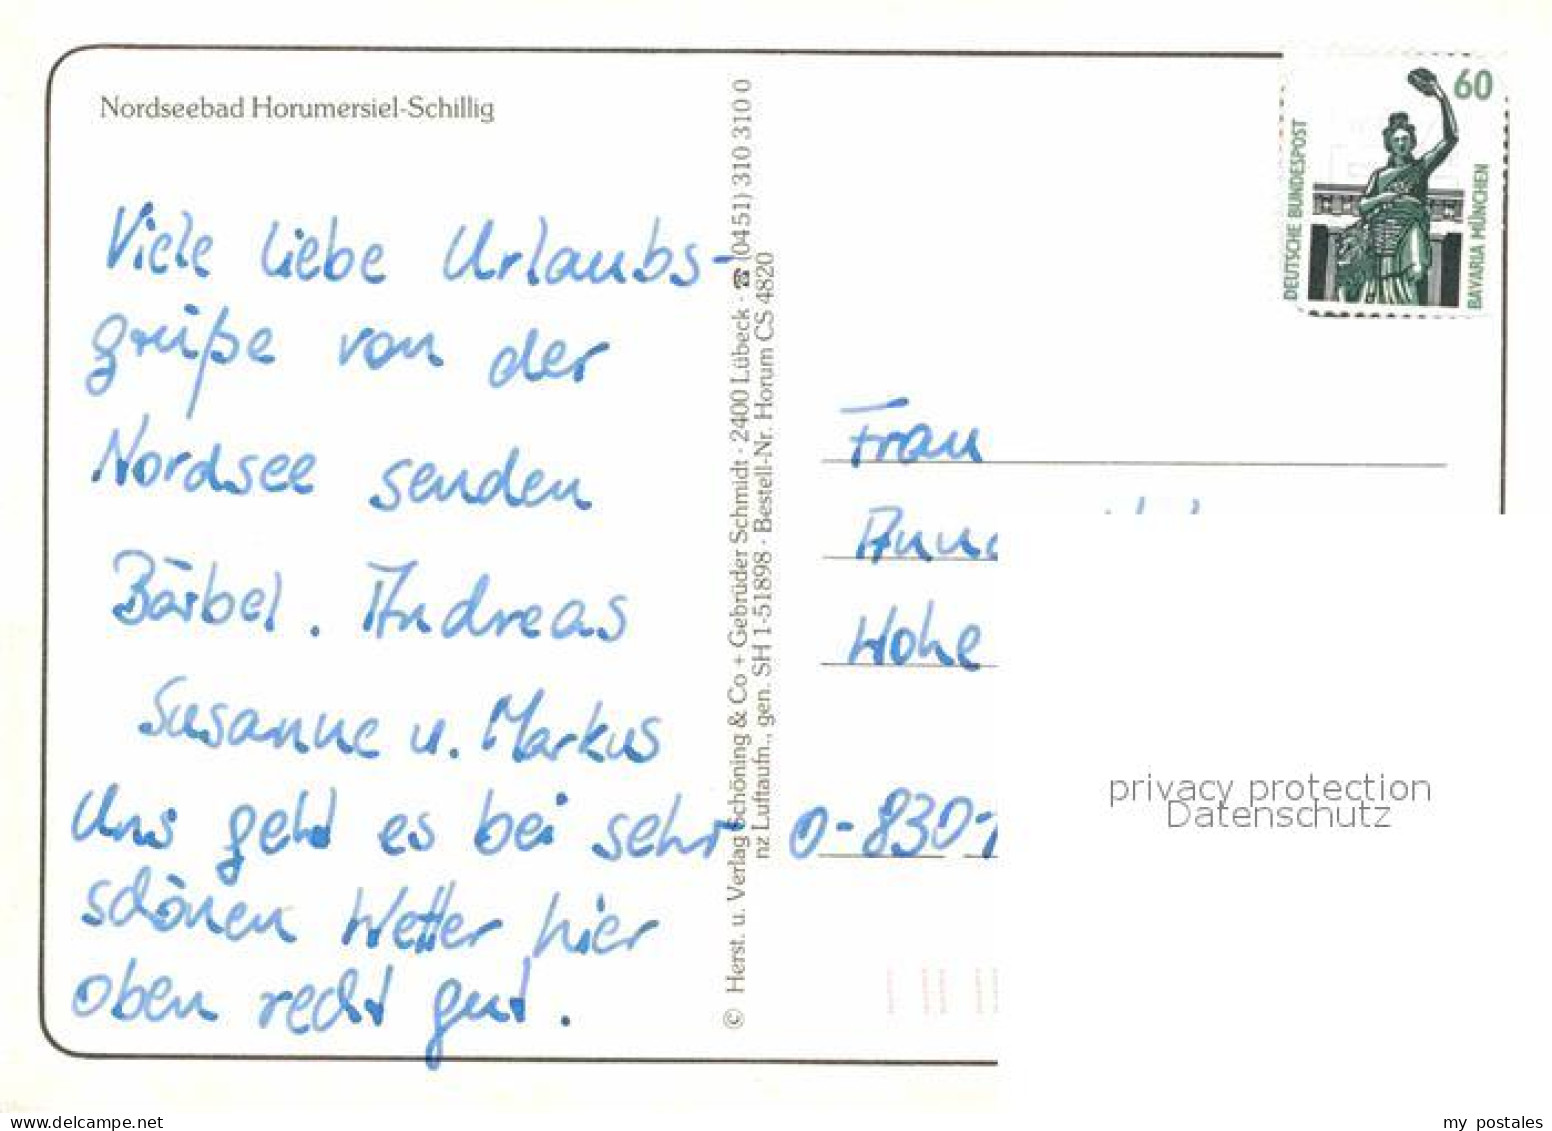 Nordseebad Horumersiel-Schillig
Viele liebe Urlaubs-
grüße von der
Nordsee senden
Bärbel. Andreas
Susanne u. Markus
Uns geht es bei sehr
schönen Wetter hier
oben recht gut.
© Herst. u. Verlag Schöning & Co + Gebrüder Schmidt · 2400 Lübeck · ☎ (0451) 310 310 0
nz Luftaufn., gen. SH 1-51898 · Bestell-Nr. Horum CS 4820
60
DEUTSCHE BUNDESPOST
BAVARIA MÜNCHEN
Frau
Hohe
O-8301
privacy protection
Datenschutz
delcampe.net
my_postales